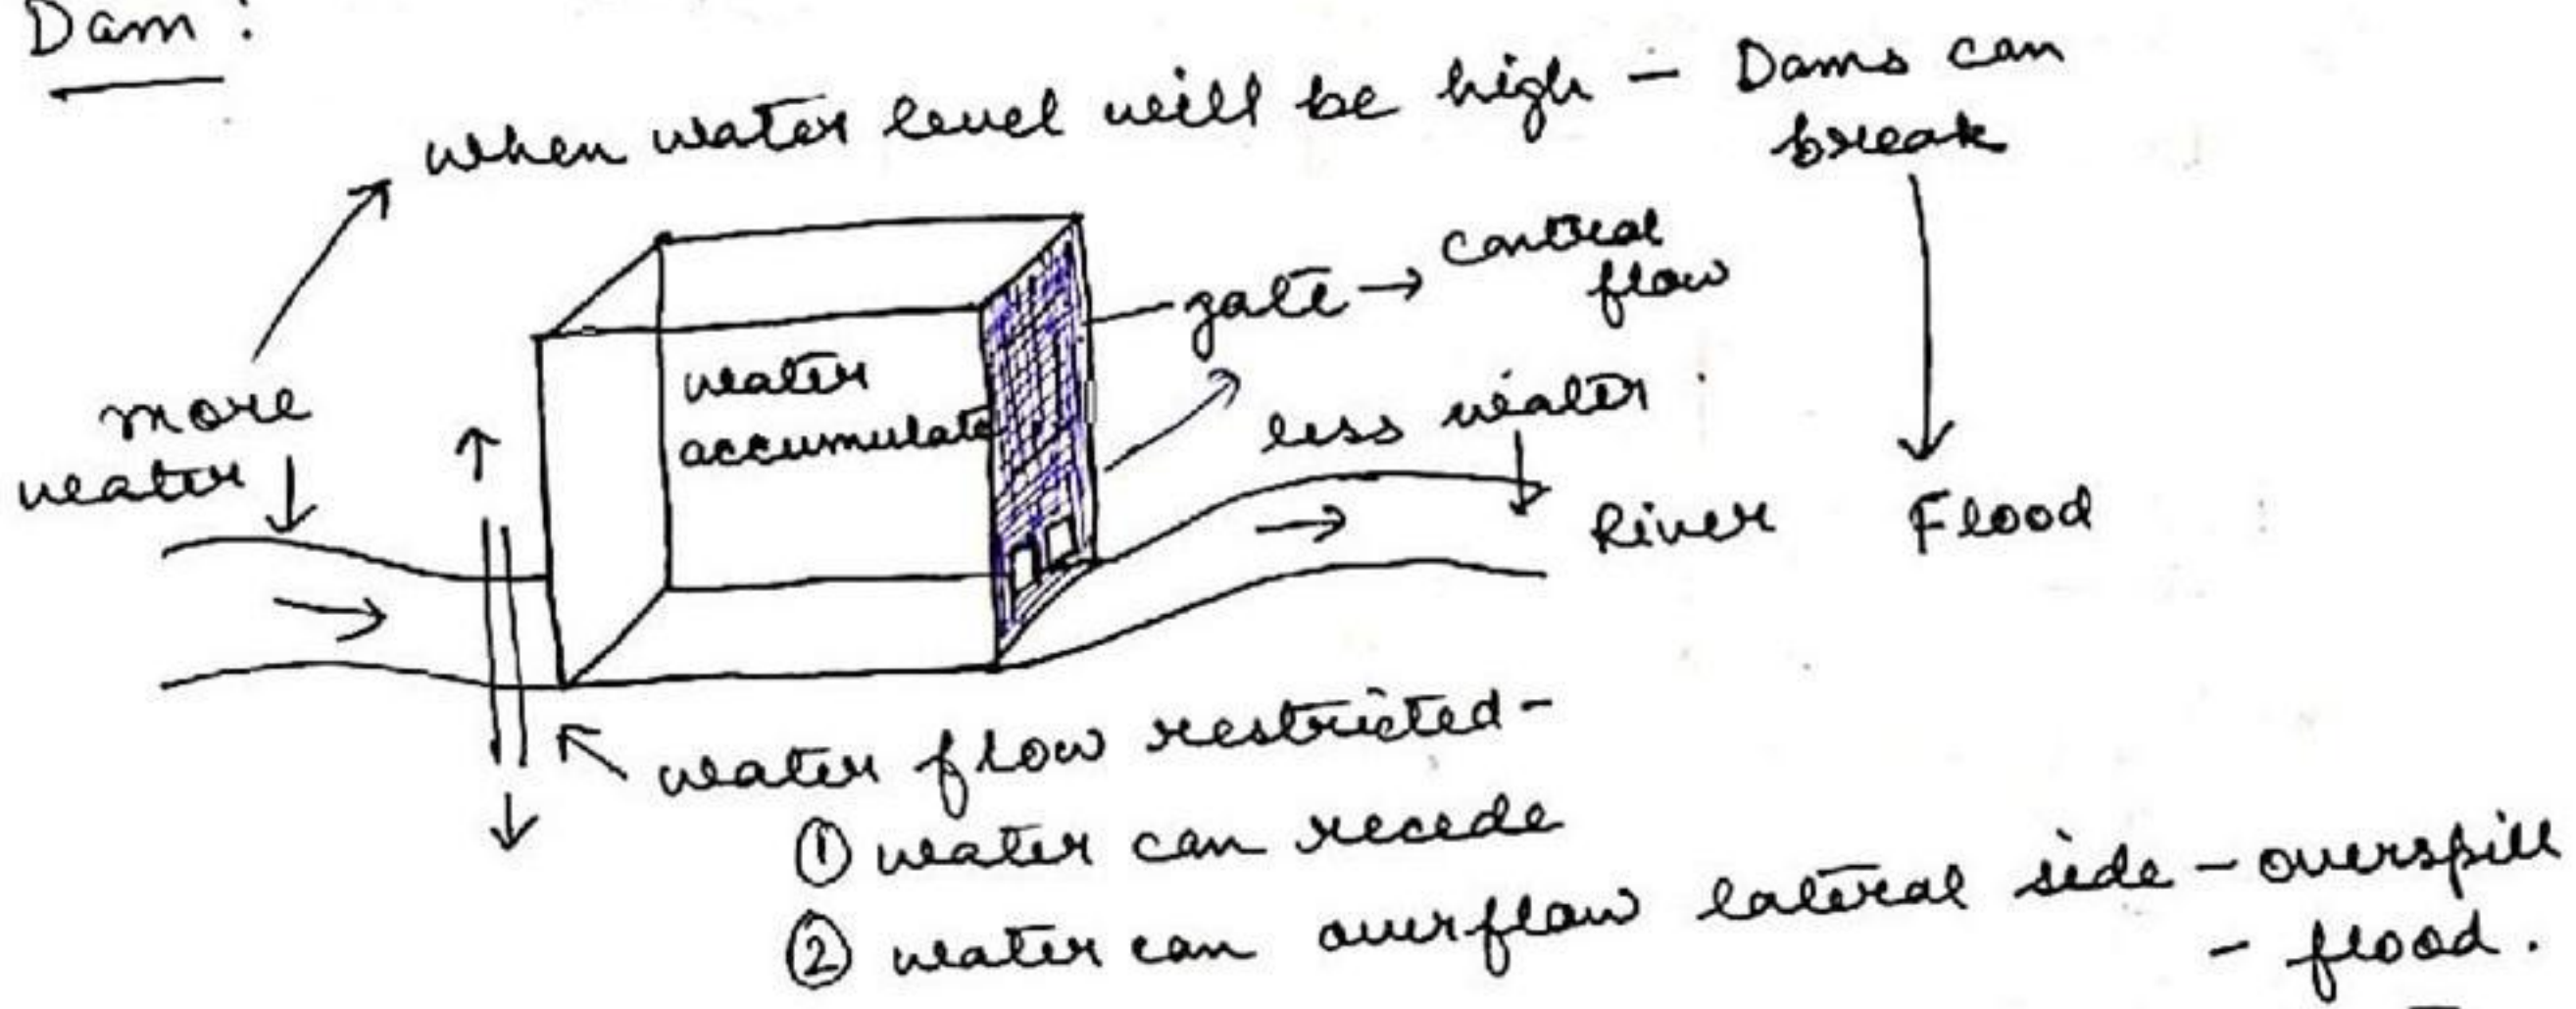 Dam :
when water level will be high - Dams can
break
gate → control
flow
more
water
water
accumulate
less water
River
Flood
water flow restricted -
① water can recede
② water can overflow lateral side - overspill
- flood.